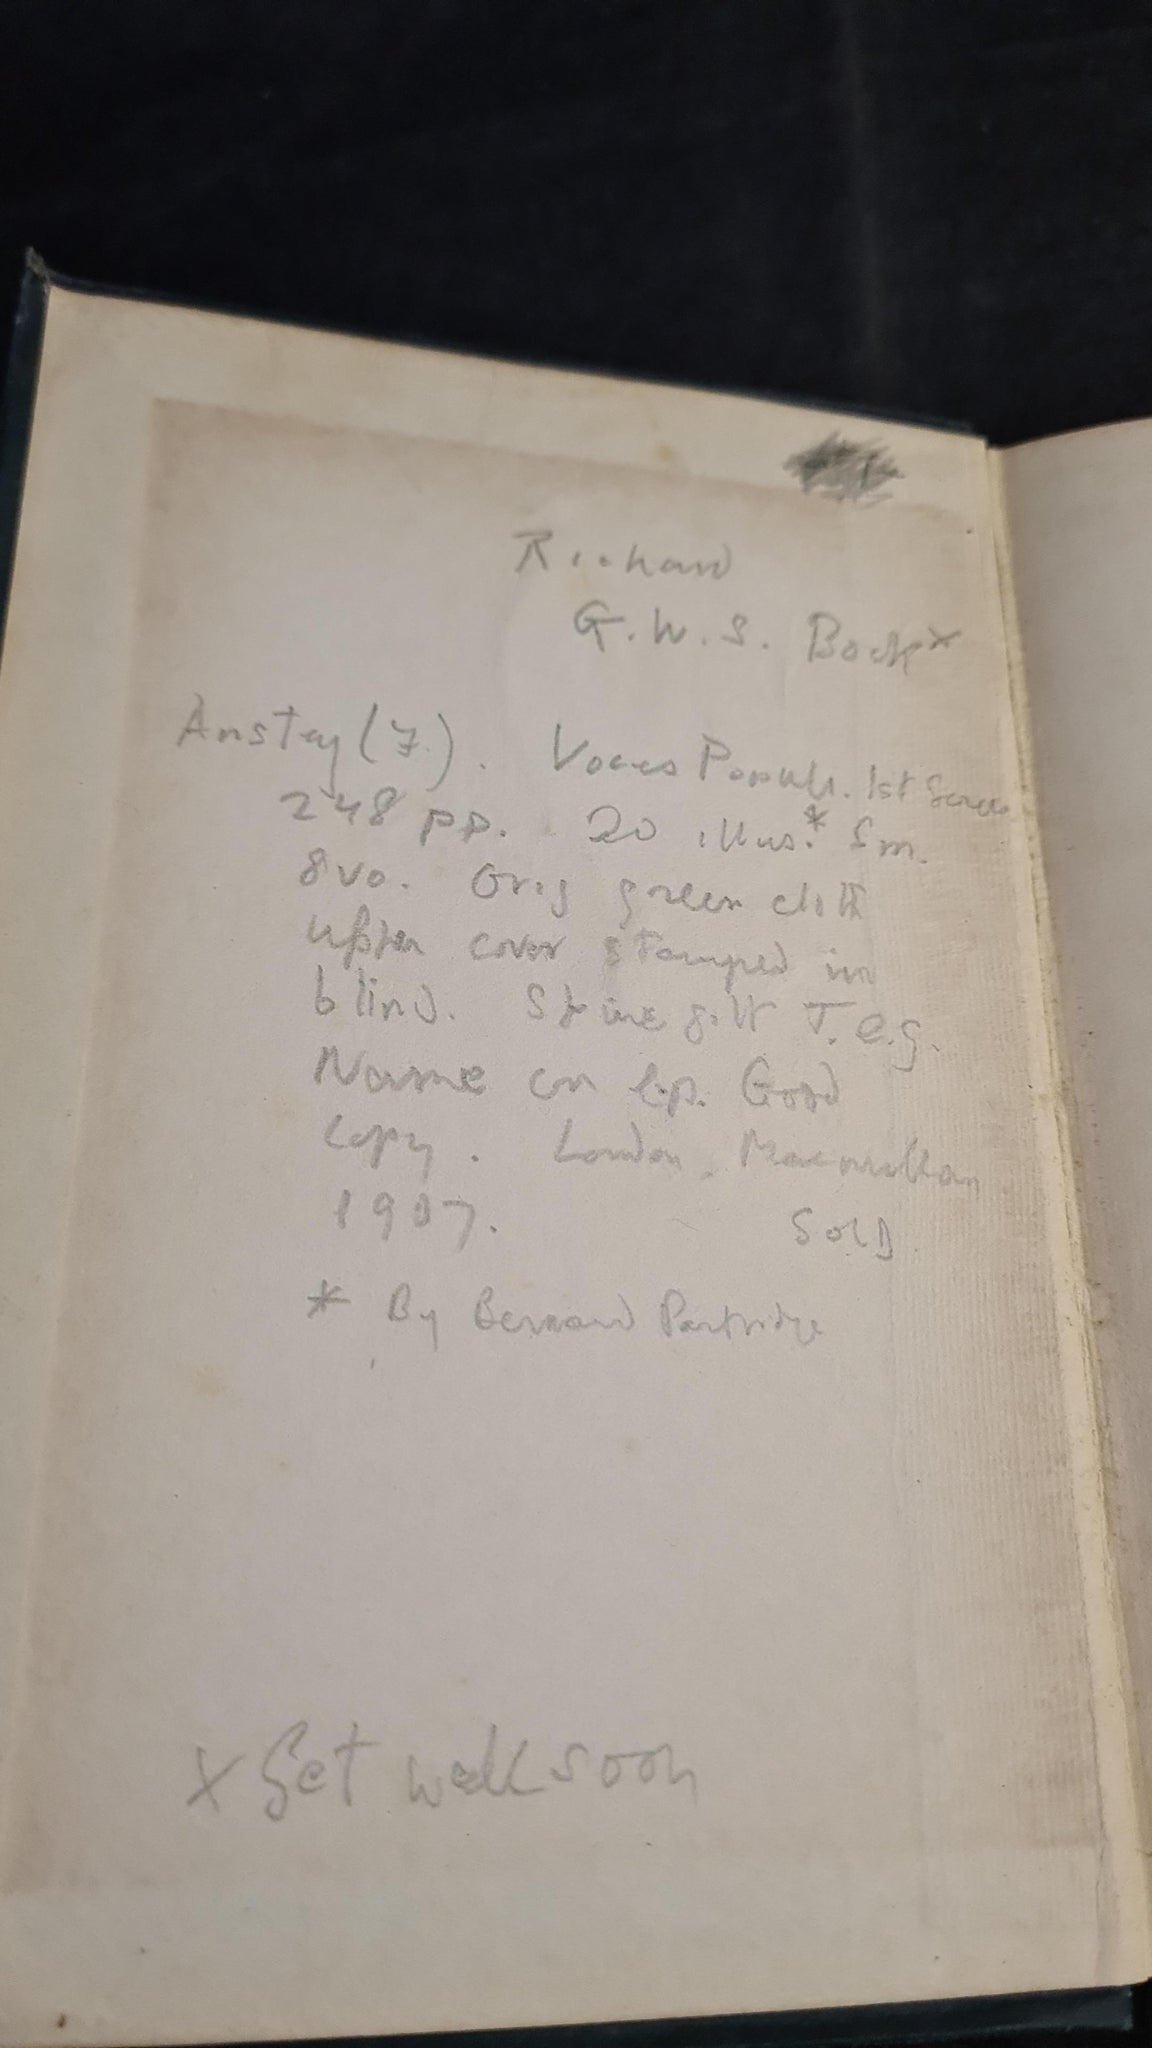 Richard
G.W.S. Book*
Anstey (F.). Voces Populi. 1st Series
248 pp. 20 illus.* Sm.
8vo. Orig green cloth
upper cover stamped in
blind. Spine gilt T.e.g.
Name on e.p. Good
copy. London, Macmillan
1907. SOLD
* By Bernard Partridge
x Get well soon